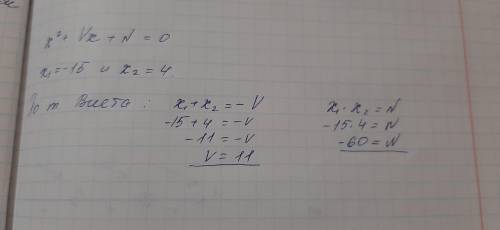 x² + Vx + N = 0
x₁ = -15 и x₂ = 4.
По т. Виета :
x₁ + x₂ = - V
-15 + 4 = -V
-11 = -V
V = 11
x₁ · x₂ = N
-15 · 4 = N
-60 = N